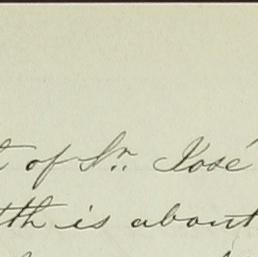 t of Sr. José
th is about